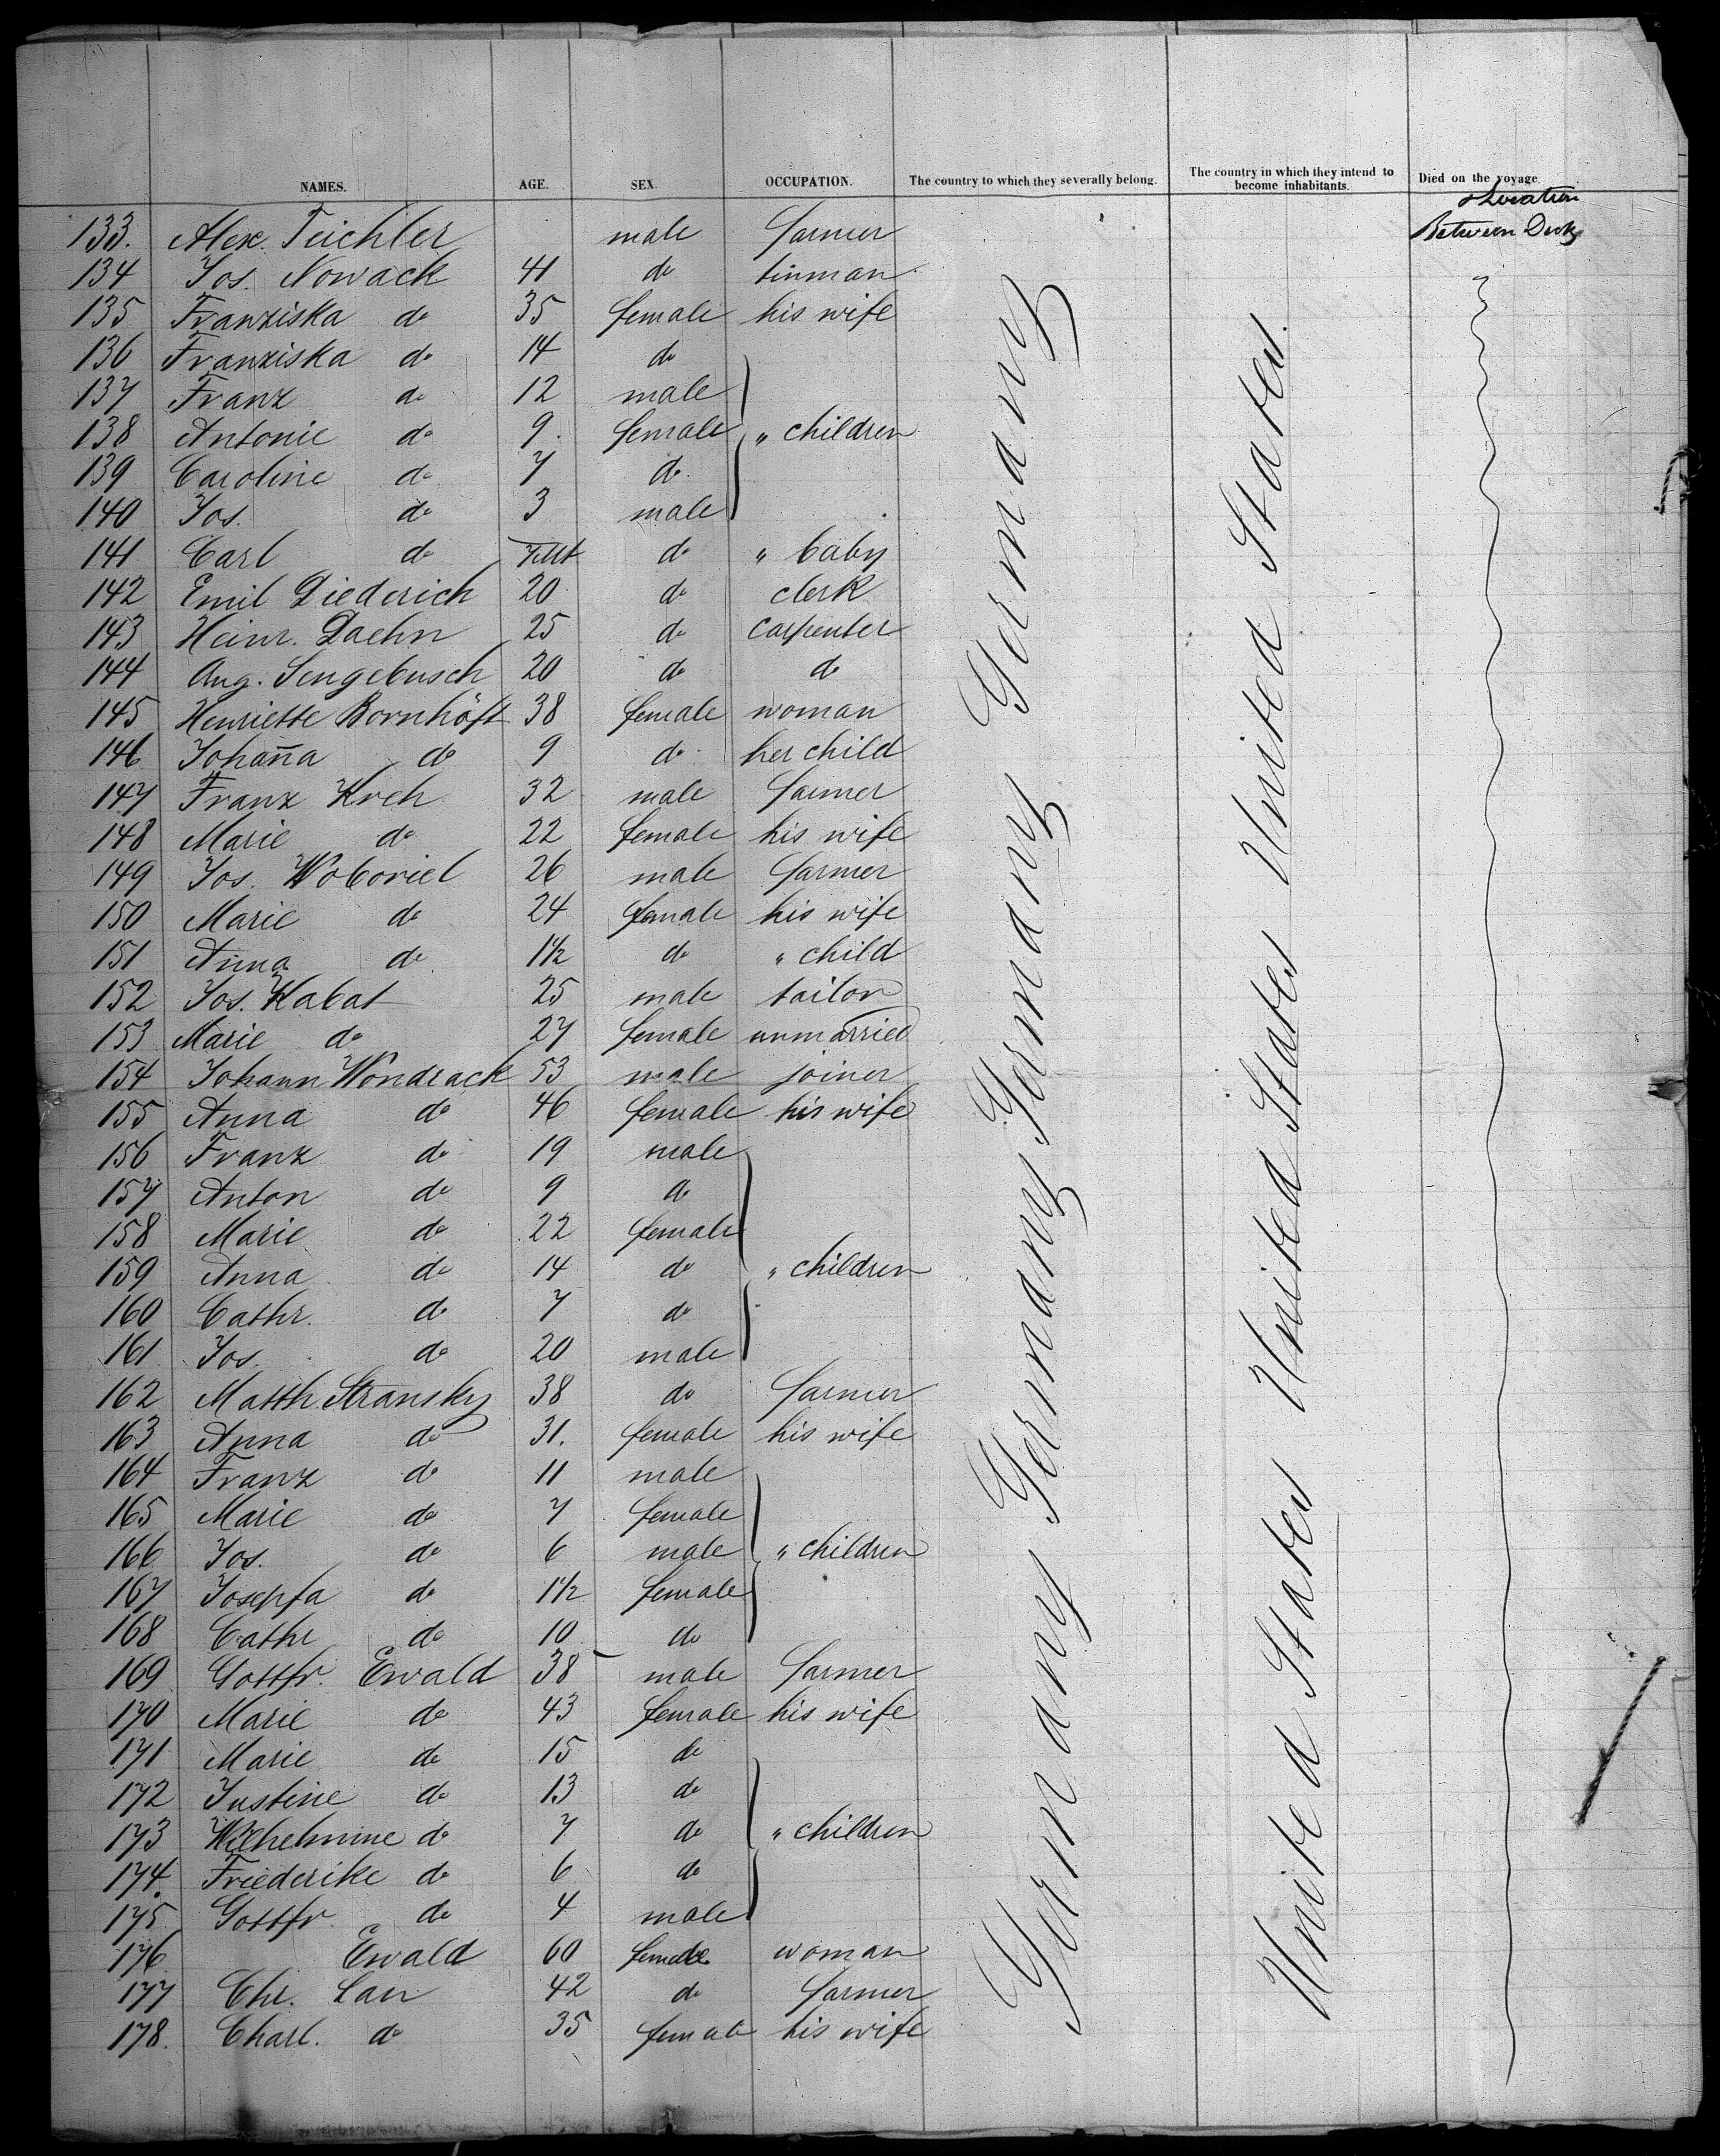 NAMES. AGE. SEX. OCCUPATION. The country to which they severally belong. The country in which they intend to become inhabitants. Died on the voyage.
& Location
Between Deck
133. Alex. Teichler male farmer
134 Jos. Nowack 41 do tinman
135 Franziska do 35 female his wife
136 Franziska do 14 do
137 Franz do 12 male
138 Antonie do 9. female " children
139 Caroline do 7 do
140 Jos. do 3 male
141 Carl do do " baby
142 Emil Diederich 20 do clerk
143 Heinr. Daehn 25 do carpenter
144 Aug. Sengebusch 20 do do
145 Henriette Bornhöft 38 female woman
146 Johan̄a do 9 do her child
147 Franz Kreh 32 male farmer
148 Marie do 22 female his wife
149 Jos. Woboriel 26 male farmer
150 Marie do 24 female his wife
151 Anna do 1½ do " child
152 Jos. Kabat 25 male tailor
153 Marie do 27 female unmarried
154 Johann Wondrack 53 male joiner
155 Anna do 46 female his wife
156 Franz do 19 male
157 Anton do 9 do
158 Marie do 22 female
159 Anna do 14 do " children
160 Cathr. do 7 do
161 Jos. do 20 male
162 Matth. Stransky 38 do farmer
163 Anna do 31. female his wife
164 Franz do 11 male
165 Marie do 7 female
166 Jos. do 6 male " children
167 Josepfa do 1½ female
168 Cathr do 10 do
169 Gottfr. Ewald 38 male farmer
170 Marie do 43 female his wife
171 Marie do 15 do
172 Justine do 13 do
173 Wilhelmine do 7 do " children
174. Friederike do 6 do
175 Gottfr. do 4 male
176 Ewald 60 female woman
177 Chr. Lau 42 do farmer
178. Charl. do 35 female his wife
Germany Germany Germany Germany
United States United States United States